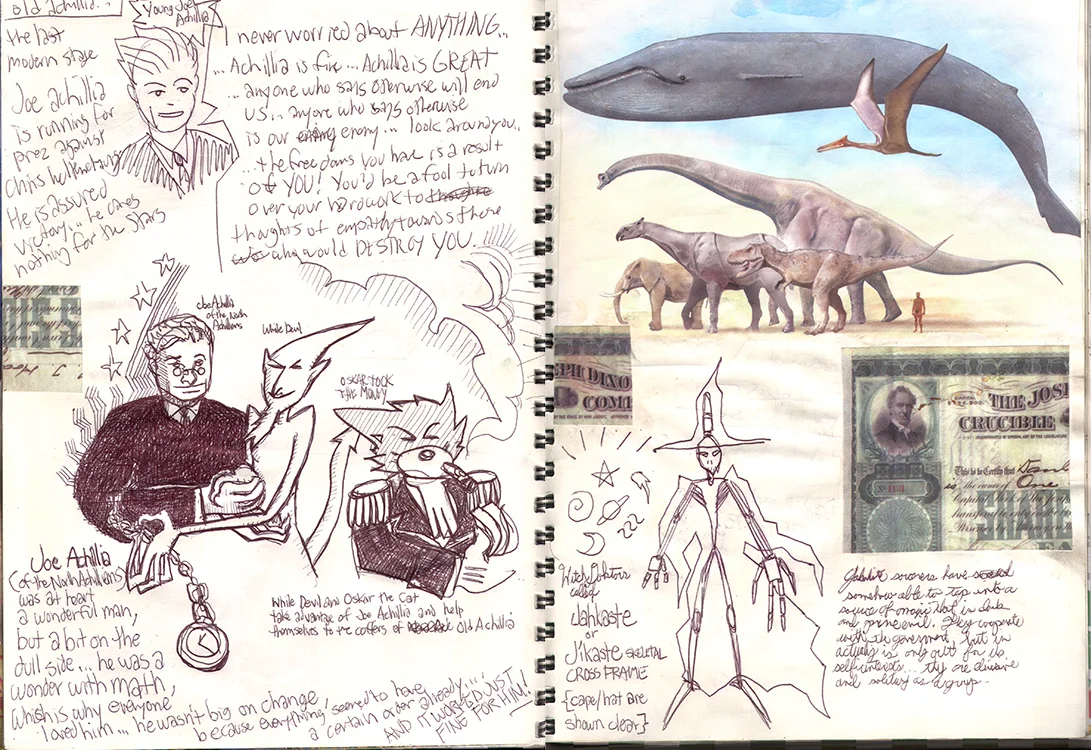 Old Achillia..
the last
modern state
Joe Achillia
is running for
prez against
Chris
He is assured
victory... he cares
nothing for the stars
Young Joe
Achillia
never worried about ANYTHING..
... Achillia is fine ... Achillia is GREAT
... anyone who says otherwise will end
us... anyone who says otherwise
is our enemy... look around you..
... the freedoms you have is a result
of YOU! You'd be a fool to turn
over your hardwork to
thoughts of empathy towards those
who would DESTROY YOU.
Joe Achillia
of the North
Achillians
While Devil
OSKAR TOOK
THE MONEY
Joe Achillia
(of the North Achillians)
was at heart
a wonderful man,
but a bit on the
dull side... he was a
wonder with math,
which is why everyone
loved him... he wasn't big on change,
because everything seemed to have
a certain order already...
AND IT WORKED JUST
FINE FOR HIM!
While Devil and Oskar the Cat
take advantage of Joe Achillia and help
themselves to the coffers of Old Achillia
EPH DIXO
COM
THE JOS
CRUCIBLE
This is to Certify that
is the owner of One
zzz
Witch Doktors
called
Jahkaste
or
Jikaste SKELETAL
CROSS FRAME
{cape/hat are
shown clear}
sorcerers have
somehow able to tap into a
source of magic that is dark
and pure evil. They cooperate
with the government, but in
actuality is only out for its
self-interests... they are divisive
and solitary as a group..